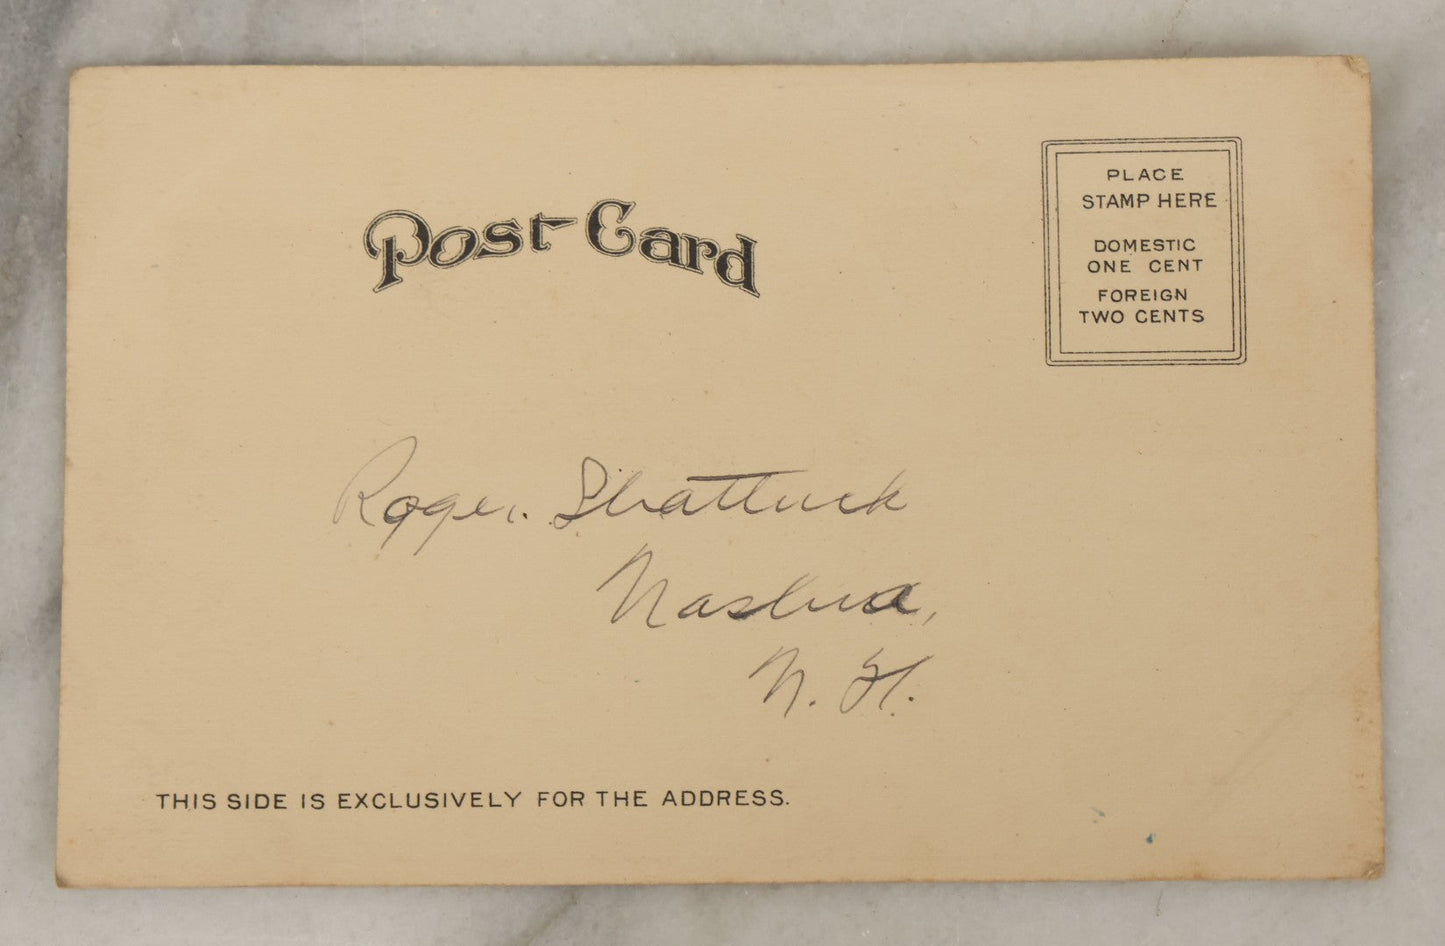 Post Card
PLACE
STAMP HERE
DOMESTIC
ONE CENT
FOREIGN
TWO CENTS
Roger. Shattuck
Nashua,
N. H.
THIS SIDE IS EXCLUSIVELY FOR THE ADDRESS.